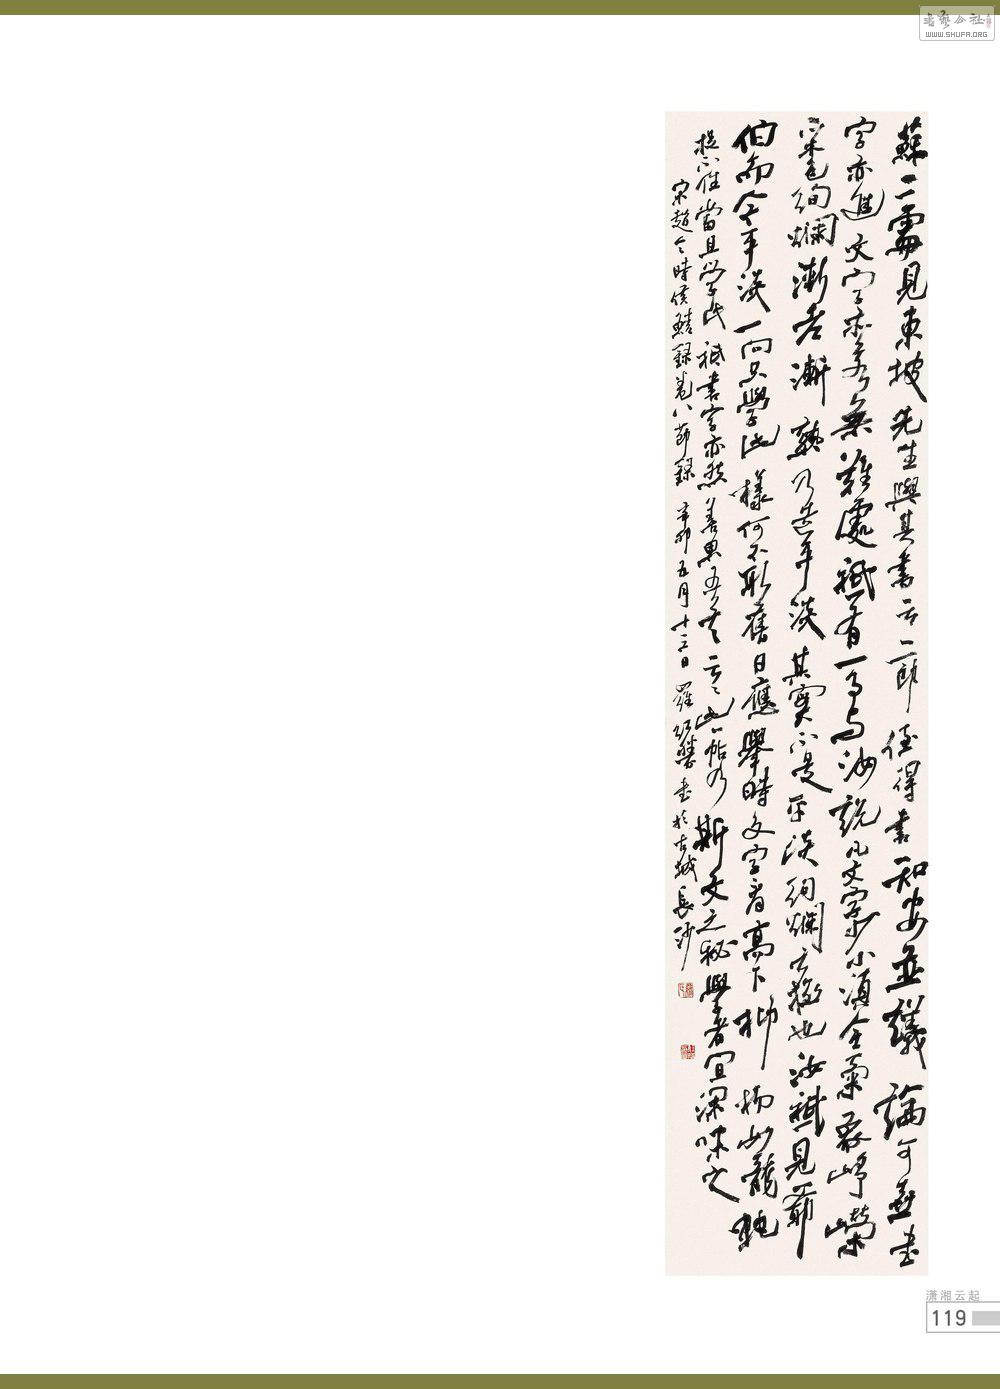 书艺公社
WWW.SHUFA.ORG
蘇二處見東坡先生與其書云二郎侄得書知安並議論可喜書
字亦進文字亦若無難處祇有一事與汝說凡文字少小須令氣象崢嶸
采色絢爛漸老漸熟乃造平淡其實不是平淡絢爛之極也汝祇見爺
伯而今平淡一向只學此樣何不取舊日應舉時文字看高下抑揚如龍蛇
捉不住當且學此祇書字亦然善思吾言云云此一帖乃斯文之秘學者宜深味之
宋趙令畤侯鯖錄卷八節錄 辛卯五月十三日 羅紅勝書於古城長沙
潇湘云起
119